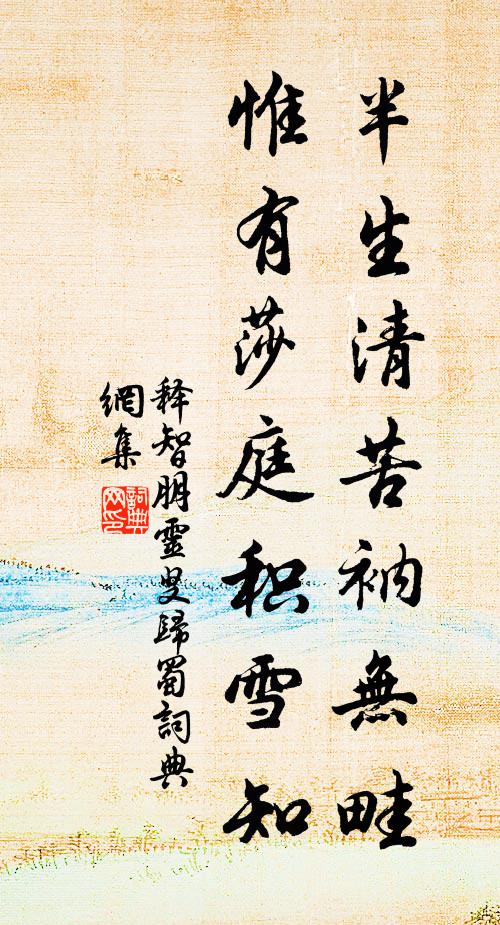 半生清苦衲無畦
惟有莎庭积雪知
释智朋靈叟歸蜀詞典
網集
詞典
网印